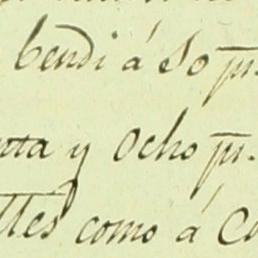 bendi á So p̅s.
nta y Ocho p̅s.
ttes como á C